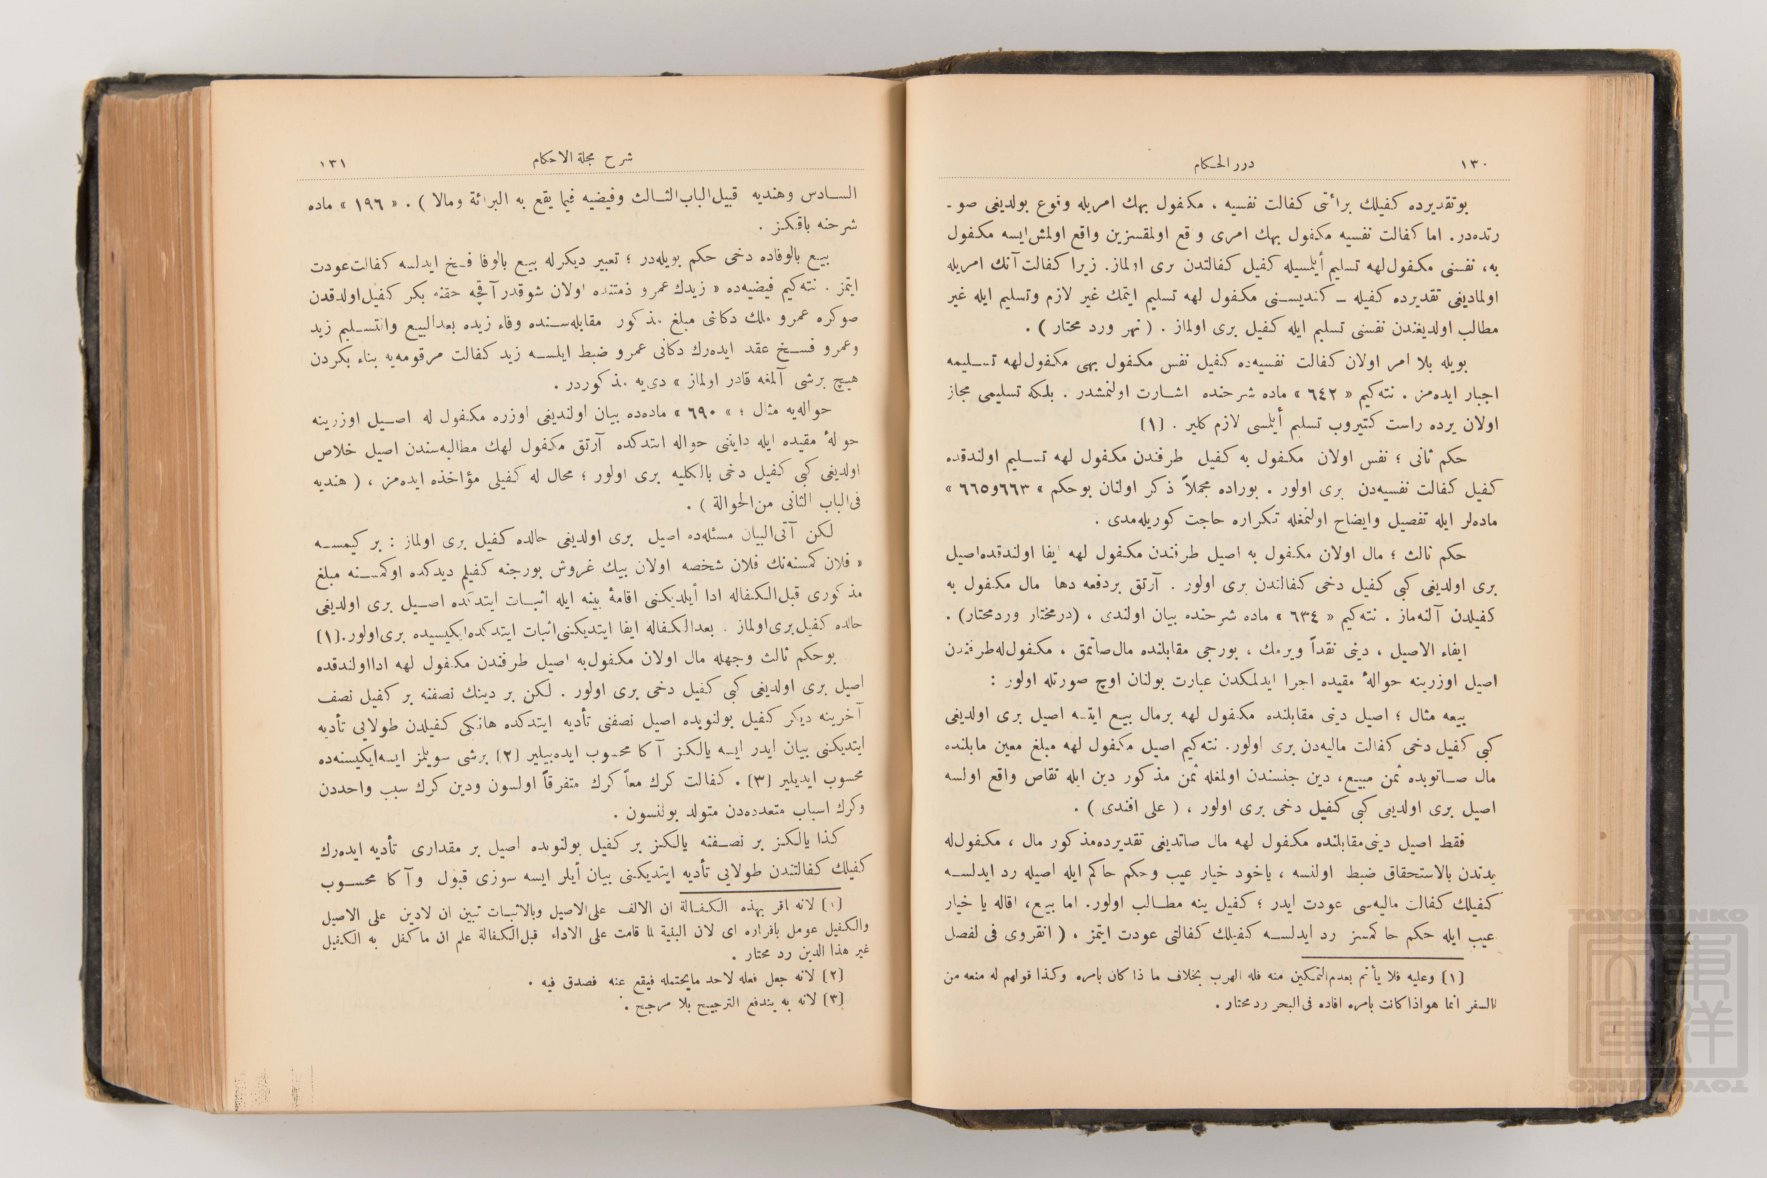 ١٣٠
درر الحكام
بوتقديرده كفيلك برائتى كفالت نفسيه ، مكفول بهك امريله وقوع بولديغى صو ـ
رتده‌در. اما كفالت نفسيه مكفول بهك امرى وقع اولمقسزين واقع اولمش‌ايسه مكفول
به، نفسنى مكفول‌لهه تسليم أيلمسيله كفيل كفالتدن برى اولماز. زيرا كفالت آنك امريله
اولماديغى تقديرده كفيله ــ كنديسنى مكفول لهه تسليم ايتمك غير لازم وتسليم ايله غير
مطالب اولديغندن نفسنى تسليم ايله كفيل برى اولماز . ( نهر ورد محتار ) .
بويله بلا امر اولان كفالت نفسيه‌ده كفيل نفس مكفول بهى مكفول‌لهه تسليمه
اجبار ايده‌مز . نته‌كيم « ٦٤٢ » ماده شرحنده اشارت اولنمشدر . بلكه تسليمى مجاز
اولان يرده راست كتيروب تسليم أيلمسى لازم كلير . (١)
حكم ثانى ؛ نفس اولان مكفول به كفيل طرفندن مكفول لهه تسليم اولندقده
كفيل كفالت نفسيه‌دن برى اولور . بوراده مجملاً ذكر اولنان بوحكم « ٦٦٣و٦٦٥ »
ماده‌لر ايله تفصيل وايضاح اولنمغله تكراره حاجت كوريله‌مدى .
حكم ثالث ؛ مال اولان مكفول به اصيل طرفندن مكفول لهه ايفا اولندقده‌اصيل
برى اولديغى كبى كفيل دخى كفالتدن برى اولور . آرتق بردفعه دها مال مكفول به
كفيلدن آلنه‌ماز . نته‌كيم « ٦٣٤ » ماده شرحنده بيان اولندى ، (درمختار وردمحتار) .
ايفاء الاصيل ، دينى نقداً ويرمك ، بورجى مقابلنده مال‌صاتمق ، مكفول‌له‌طرفندن
اصيل اوزرينه حوالهٔ مقيده اجرا ايدلمكدن عبارت بولنان اوچ صورتله اولور :
بيعه مثال ؛ اصيل دينى مقابلنده مكفول لهه برمال بيع ايتسه اصيل برى اولديغى
كبى كفيل دخى كفالت ماليه‌دن برى اولور. نته‌كيم اصيل مكفول لهه مبلغ معين مابلنده
مال صاتوبده ثمن مبيع، دين جنسندن اولمغله ثمن مذكور دين ايله تقاص واقع اولسه
اصيل برى اولديغى كبى كفيل دخى برى اولور ، ( على افندى ) .
فقط اصيل دينى‌مقابلنده مكفول لهه مال صاتديغى تقديرده‌مذكور مال ، مكفول‌له
يدندن بالاستحقاق ضبط اولنسه ، ياخود خيار عيب وحكم حاكم ايله اصيله رد ايدلسه
كفيلك كفالت ماليه‌سى عودت ايدر ؛ كفيل ينه مطالب اولور. اما بيع، اقاله يا خيار
عيب ايله حكم حاكمسز رد ايدلسه كفيلك كفالتى عودت ايتمز . ( انقروى فى لفصل
(١) وعليه فلا يأثم بعدم‌التمكين منه فله الهرب بخلاف ما ذا كان بامره وكذا قولهم له منعه من
السفر انما هواذا كانت بامره افاده فى‌البحر رد محتار .
شرح مجلة الاحكام
١٣١
السادس وهنديه قبيل‌الباب‌الثالث وفيضيه فيما يقع به البرائة ومالا ) . « ١٩٦ » ماده
شرحنه باقكز .
بيع بالوفاده دخى حكم بويله‌در ؛ تعبير ديكرله بيع بالوفا فسخ ايدلسه كفالت‌عودت
ايتمز . نته‌كيم فيضيه‌ده « زيدك عمرو ذمتنده اولان شوقدر آقچه حقنه بكر كفيل‌اولدقدن
صوكره عمرو ملك دكانى مبلغ مذكور مقابله‌سنده وفاء زيده بعدالبيع والتسليم زيد
وعمرو فسخ عقد ايده‌رك دكانى عمرو ضبط ايلسه زيد كفالت مرقومه‌يه بناء بكردن
هيچ برشى آلمغه قادر اولماز » ديه مذكوردر .
حواله‌يه مثال ؛ « ٦٩٠ » ماده‌ده بيان اولنديغى اوزره مكفول له اصيل اوزرينه
حوالهٔ مقيده ايله داينى حواله ايتدكده آرتق مكفول لهك مطالبه‌سندن اصيل خلاص
اولديغى كبى كفيل دخى بالكليه برى اولور ؛ محال له كفيلى مؤاخذه ايده‌مز ، ( هنديه
فى‌الباب الثانى من‌الحوالة ) .
لكن آتى‌البيان مسئله‌ده اصيل برى اولديغى حالده كفيل برى اولماز : بر كيمسه
« فلان كمسنه‌نك فلان شخصه اولان بيك غروش بورجنه كفيلم ديدكده اوكمسنه مبلغ
مذكورى قبل‌الكفاله ادا أيلديكنى اقامهٔ بينه ايله اثبات ايتدكده اصيل برى اولديغى
حالده كفيل‌برى‌اولماز . بعدالكفاله ايفا ايتديكنى‌اثبات ايتدكده‌ايكيسيده برى‌اولور.(١)
بوحكم ثالث وجهله مال اولان مكفول‌به اصيل طرفندن مكفول لهه ادااولندقده
اصيل برى اولديغى كبى كفيل دخى برى اولور . لكن بر دينك نصفنه بر كفيل نصف
آخرينه ديكر كفيل بولنوبده اصيل نصفنى تأديه ايتدكده هانكى كفيلدن طولايى تأديه
ايتديكنى بيان ايدر ايسه يالكز آكا محسوب ايده‌بيلير (٢) برشى سويلمز ايسه‌ايكيسنه‌ده
محسوب ايديلير (٣) . كفالت كرك معاً كرك متفرقاً اولسون ودين كرك سبب واحددن
وكرك اسباب متعدده‌دن متولد بولنسون .
كذا يالكز بر نصفنه يالكز بر كفيل بولنوبده اصيل بر مقدارى تأديه ايده‌رك
كفيلك كفالتندن طولايى تأديه ايتديكنى بيان أيلر ايسه سوزى قبول وآكا محسوب
(١) لانه اقر بهذه الكفالة ان الالف على‌الاصيل وبالاثبات تبين ان لادين على الاصيل
والكفيل عومل باقراره اى لان البينة لما قامت على الاداء قبل‌الكفالة علم ان ماكفل به الكفيل
غير هذا الدين رد محتار .
(٢) لانه جعل فعله لاحد مايحتمله فيقع عنه فصدق فيه .
(٣) لانه به يندفع الترجيح بلا مرجح .
TOYO BUNKO
東洋文庫
TOYO BUNKO